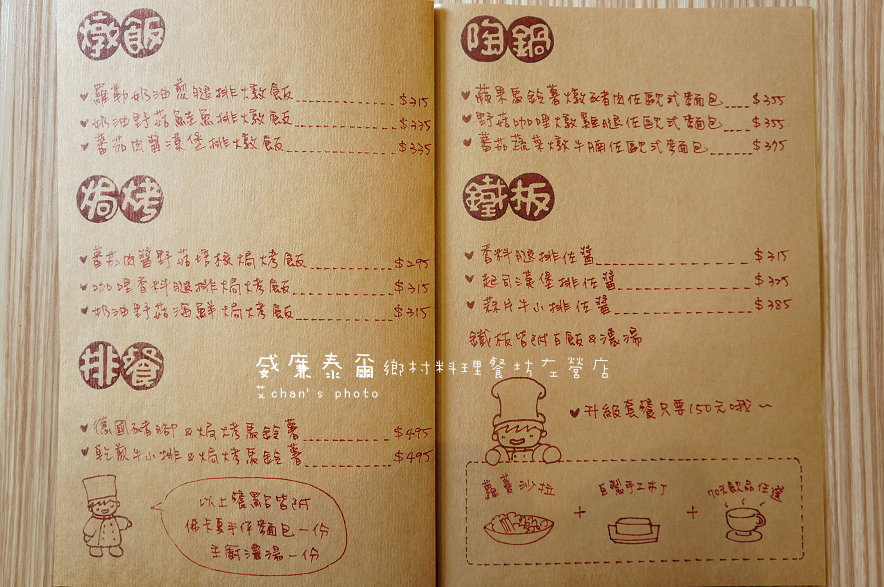 燉飯
羅勒奶油煎腿排燉飯 $315
奶油野菇鮭魚排燉飯 $335
蕃茄肉醬漢堡排燉飯 $335
焗烤
蕃茄肉醬野菇焗烤飯 $295
咖哩香料腿排焗烤飯 $315
奶油野菇海鮮焗烤飯 $315
排餐
德國豬腳&焗烤馬鈴薯 $495
乾煎牛小排&焗烤馬鈴薯 $495
以上餐點皆附
佛卡夏手作麵包一份
主廚濃湯一份
陶鍋
蘋果馬鈴薯燉豬肉佐歐式麵包 $355
野菇咖哩燉雞腿佐歐式麵包 $355
蕃茄蔬菜燉牛腩佐歐式麵包 $375
鐵板
香料腿排佐醬 $315
起司漢堡排佐醬 $325
蒜片牛小排佐醬 $385
鐵板皆附白飯&濃湯
升級套餐只要150元哦~
蘿蔓沙拉 + 自製手工布丁 + 70元飲品任選
威廉泰爾鄉村料理餐坊左營店
艾chan's photo